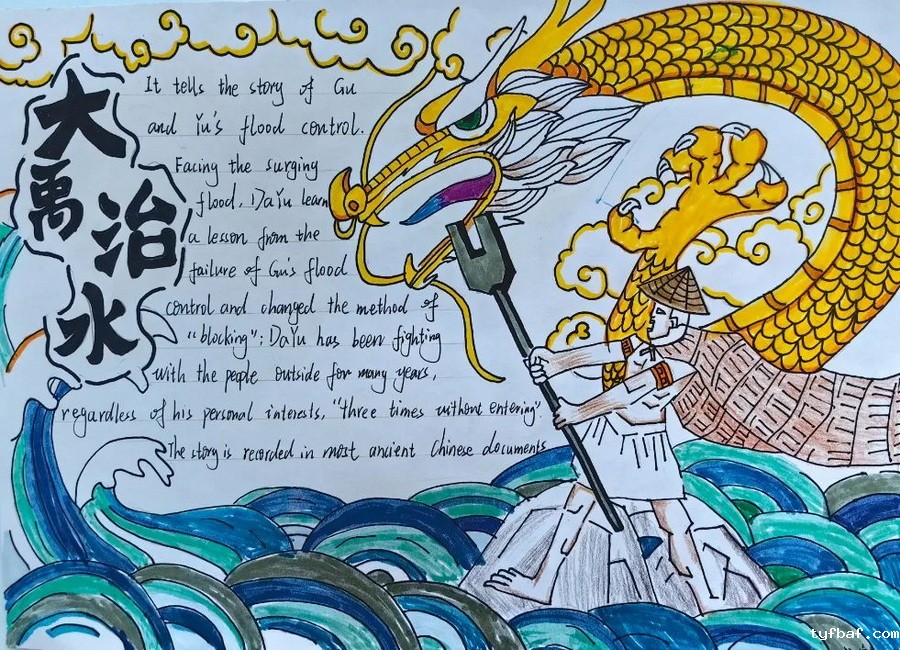 大禹治水
It tells the story of Gu
and Yu's flood control.
Facing the surging
flood, DaYu learn
a lesson from the
failure of Gu's flood
control and changed the method of
"blocking"; DaYu has been fighting
with the people outside for many years,
regardless of his personal interests, "three times without entering".
The story is recorded in most ancient Chinese documents
tyfbaf.com